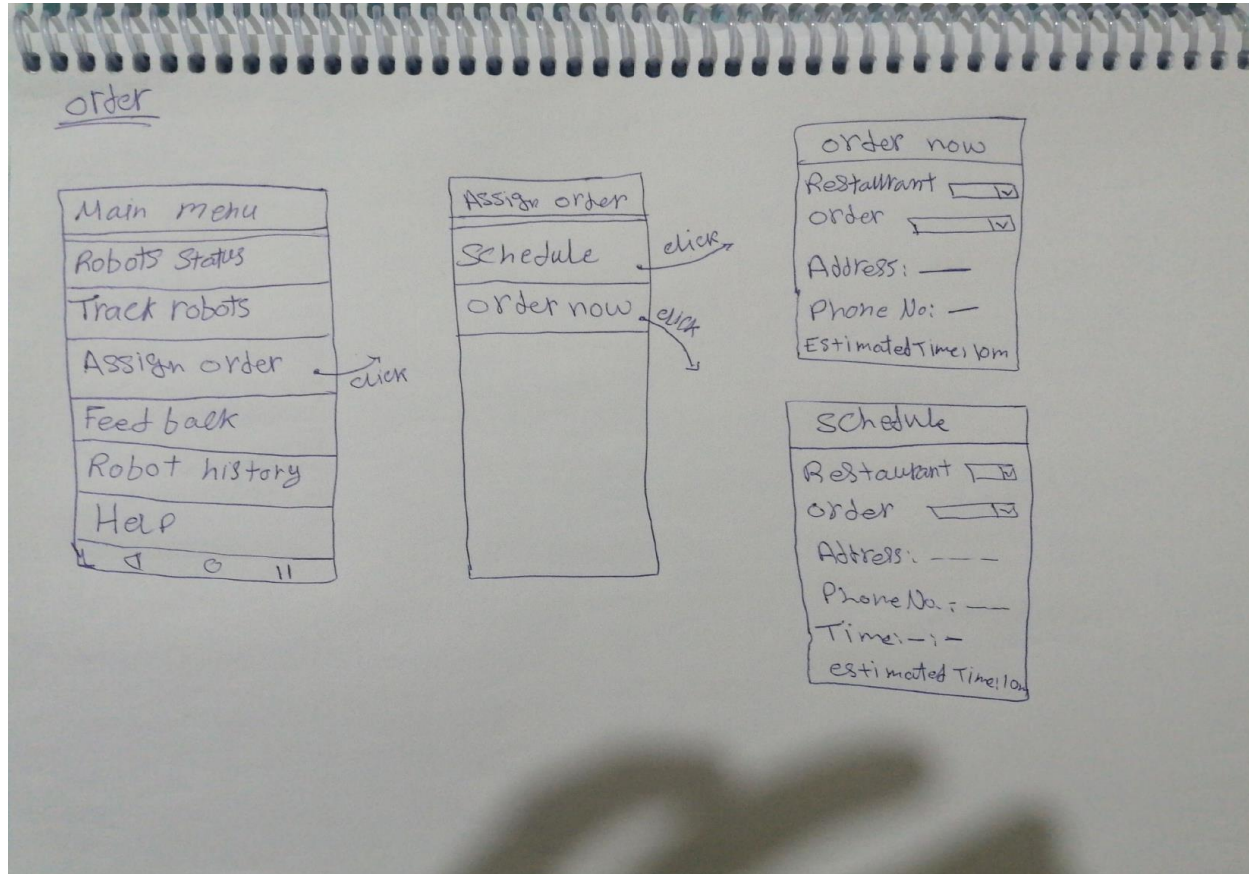 order
Main menu
Robots Status
Track robots
Assign order
click
Feed back
Robot history
Help
Assign order
Schedule
click
order now
click
order now
Restaurant
order
Address:
Phone No:
Estimated Time: 10m
Schedule
Restaurant
order
Address:
Phone No.:
Time: - : -
estimated Time: 10m